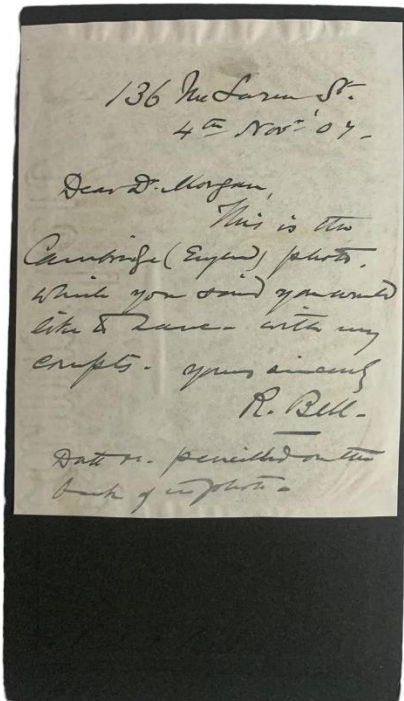 136 McLaren St.
4th Novr '07.
Dear Dr. Morgan,
This is the
Cambridge (England) photo.
which you said you would
like to have - with my
compts. yours sincerely
R. Bell.
Date &c. pencilled on the
back of photo.